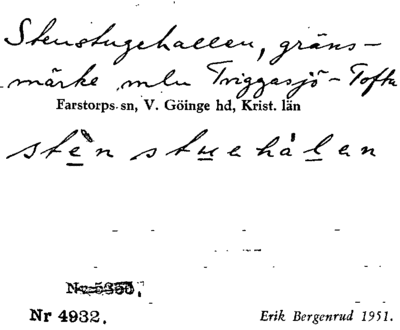 Stenstugehallen, gräns-
märke mln Triggasjö - Tofta
Farstorps sn, V. Göinge hd, Krist. län
stèn stuehålen
Nr 4932.
Erik Bergenrud 1951.